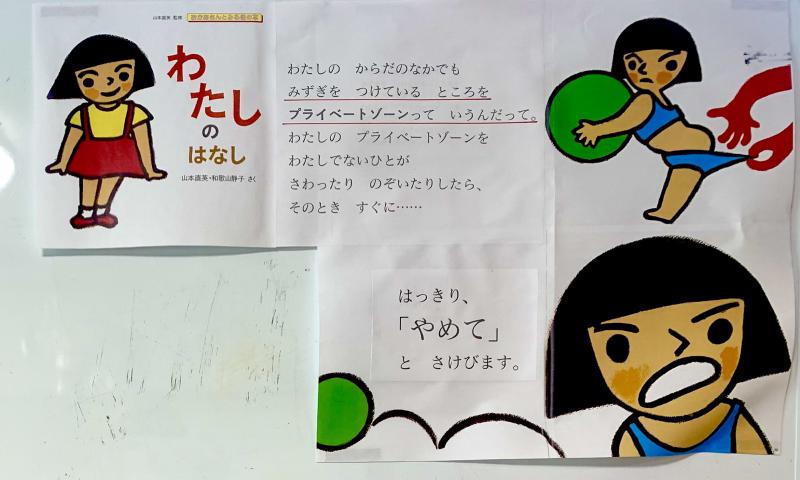 山本直英 監修 おかあさんとみる性の本
わたし
の
はなし
山本直英・和歌山静子 さく
わたしの からだのなかでも
みずぎを つけている ところを
プライベートゾーンって いうんだって。
わたしの プライベートゾーンを
わたしでないひとが
さわったり のぞいたりしたら、
そのとき すぐに……
はっきり、
「やめて」
と さけびます。